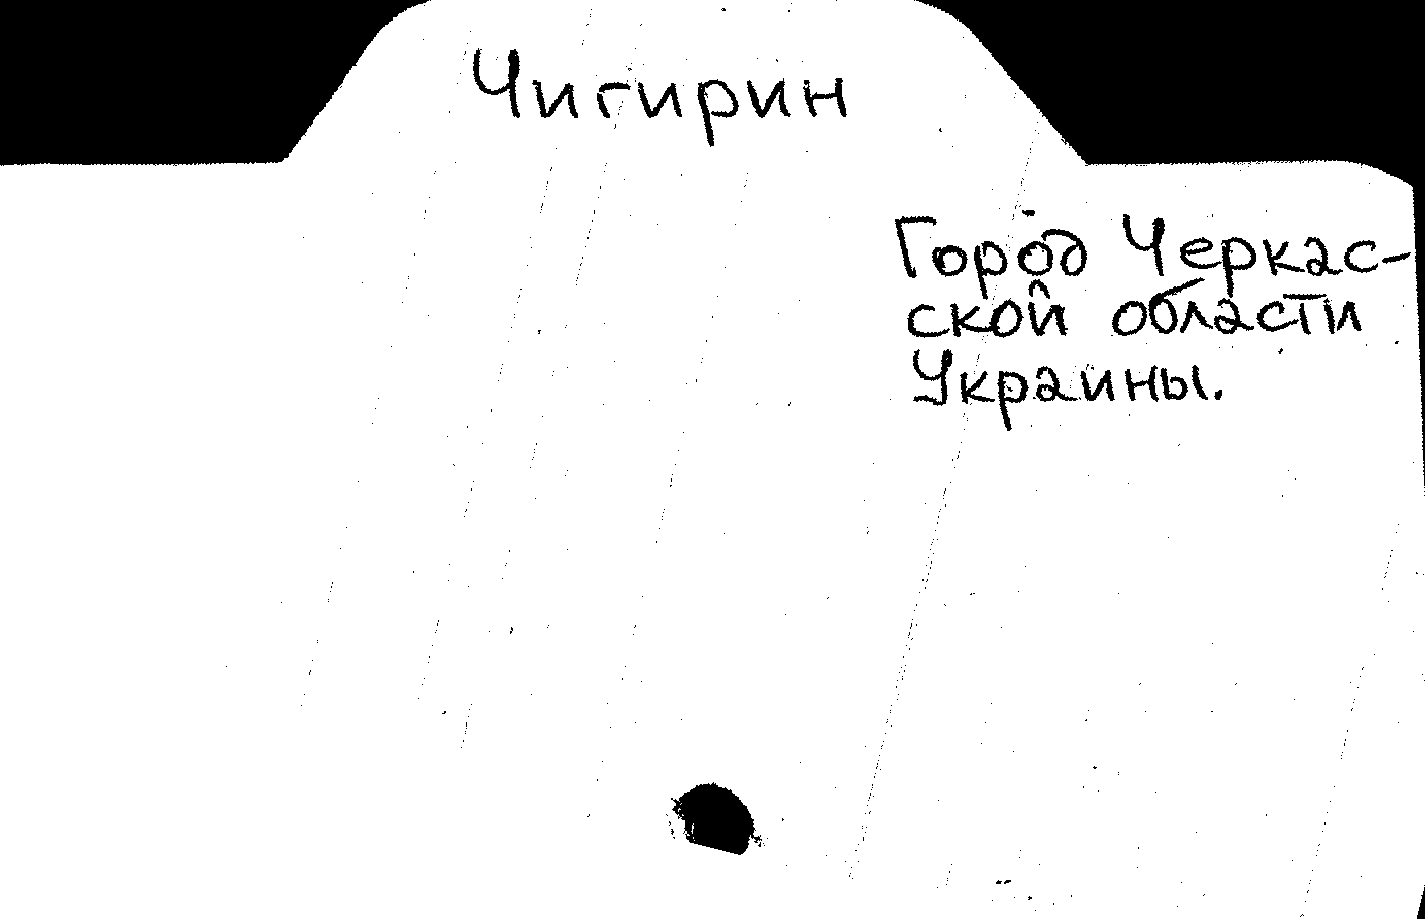 Чигирин
Город Черкас-
ской области
Украины.